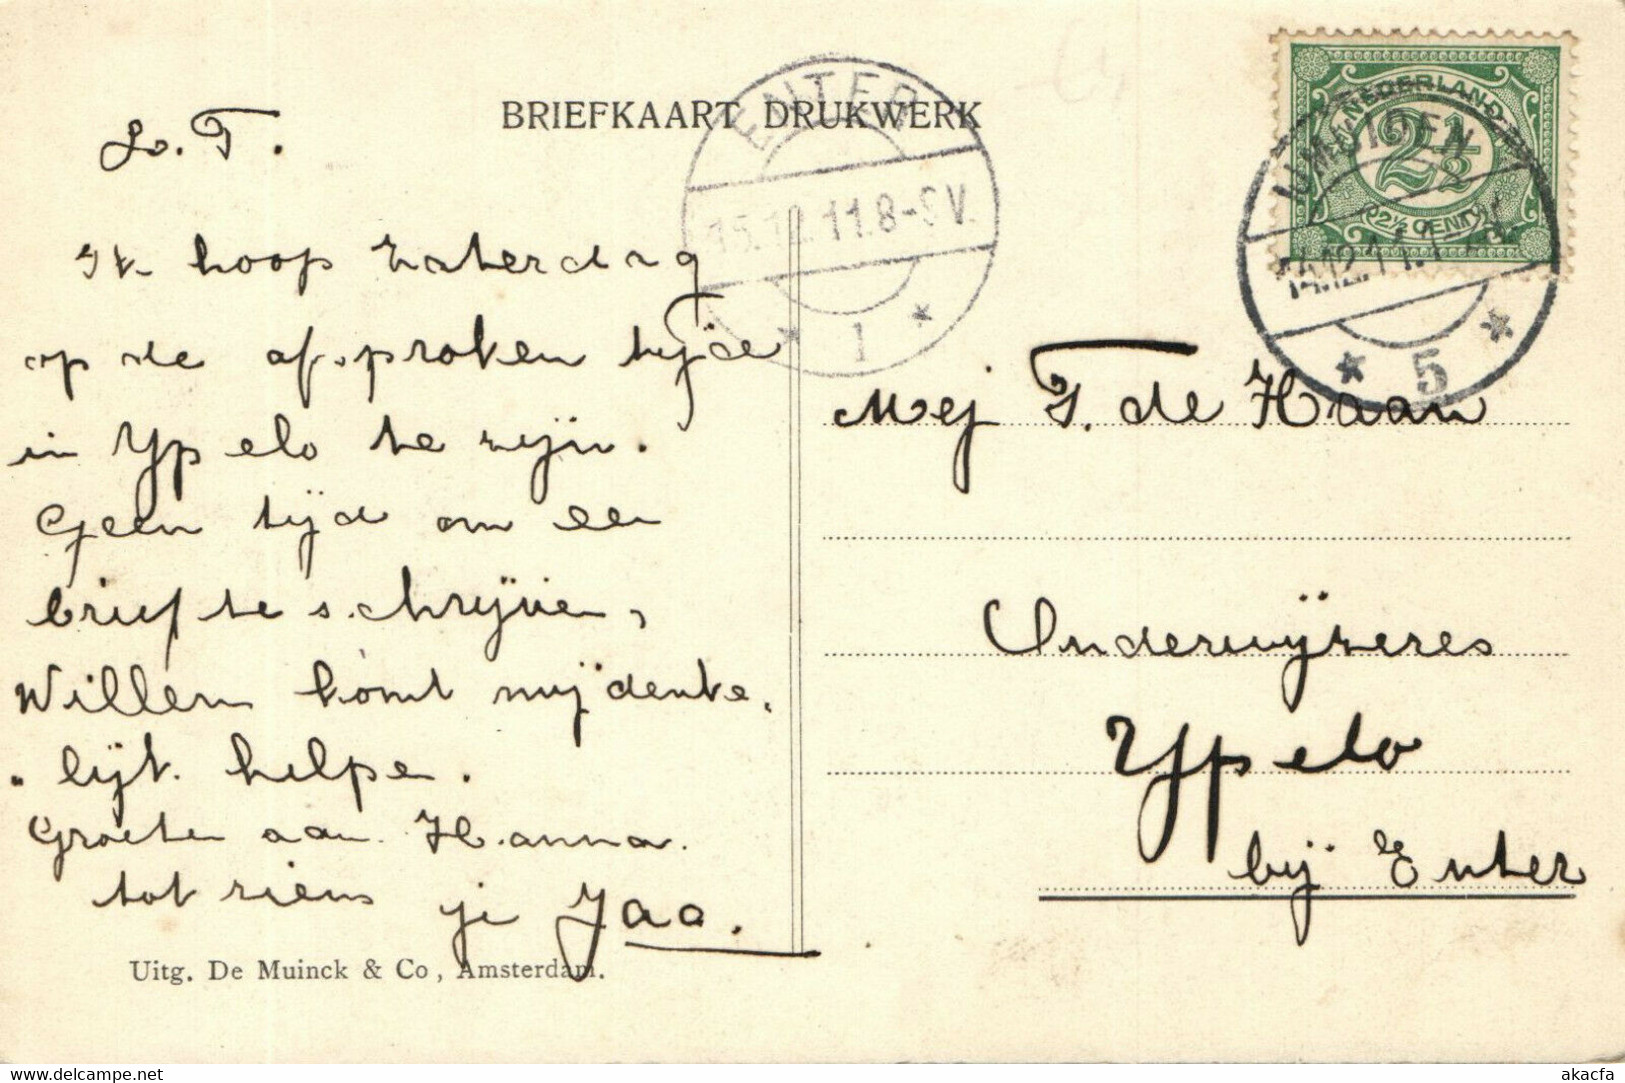 BRIEFKAART DRUKWERK
L. T.
Ik hoop Zaterdag
op de afsproken tijde
in Ypelo te zijn.
Geen tijd om een
brief te schrijven,
Willem komt mij denke-
-lijk helpen.
Groeten aan Hanna.
tot ziens je Jaa.
Uitg. De Muinck & Co, Amsterdam.
ENTER
15.12.11.8-9V.
1
NEDERLAND
2½
2½ CENT
IJMUIDEN
14.12.11.
5
Mej T. de Haan
Onderwijzeres
Ypelo
bij Enter
www.delcampe.net
akacfa